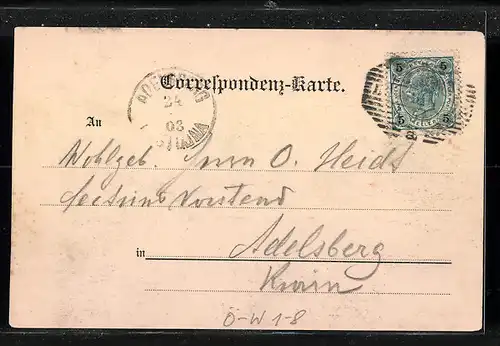 Correspondenz-Karte.
5 5
5 5
ADELSBERG
24
03
An
Wohlgeb. Herrn O.
Sections Vorstand
in Adelsberg
Krain
Ö-W 1-8